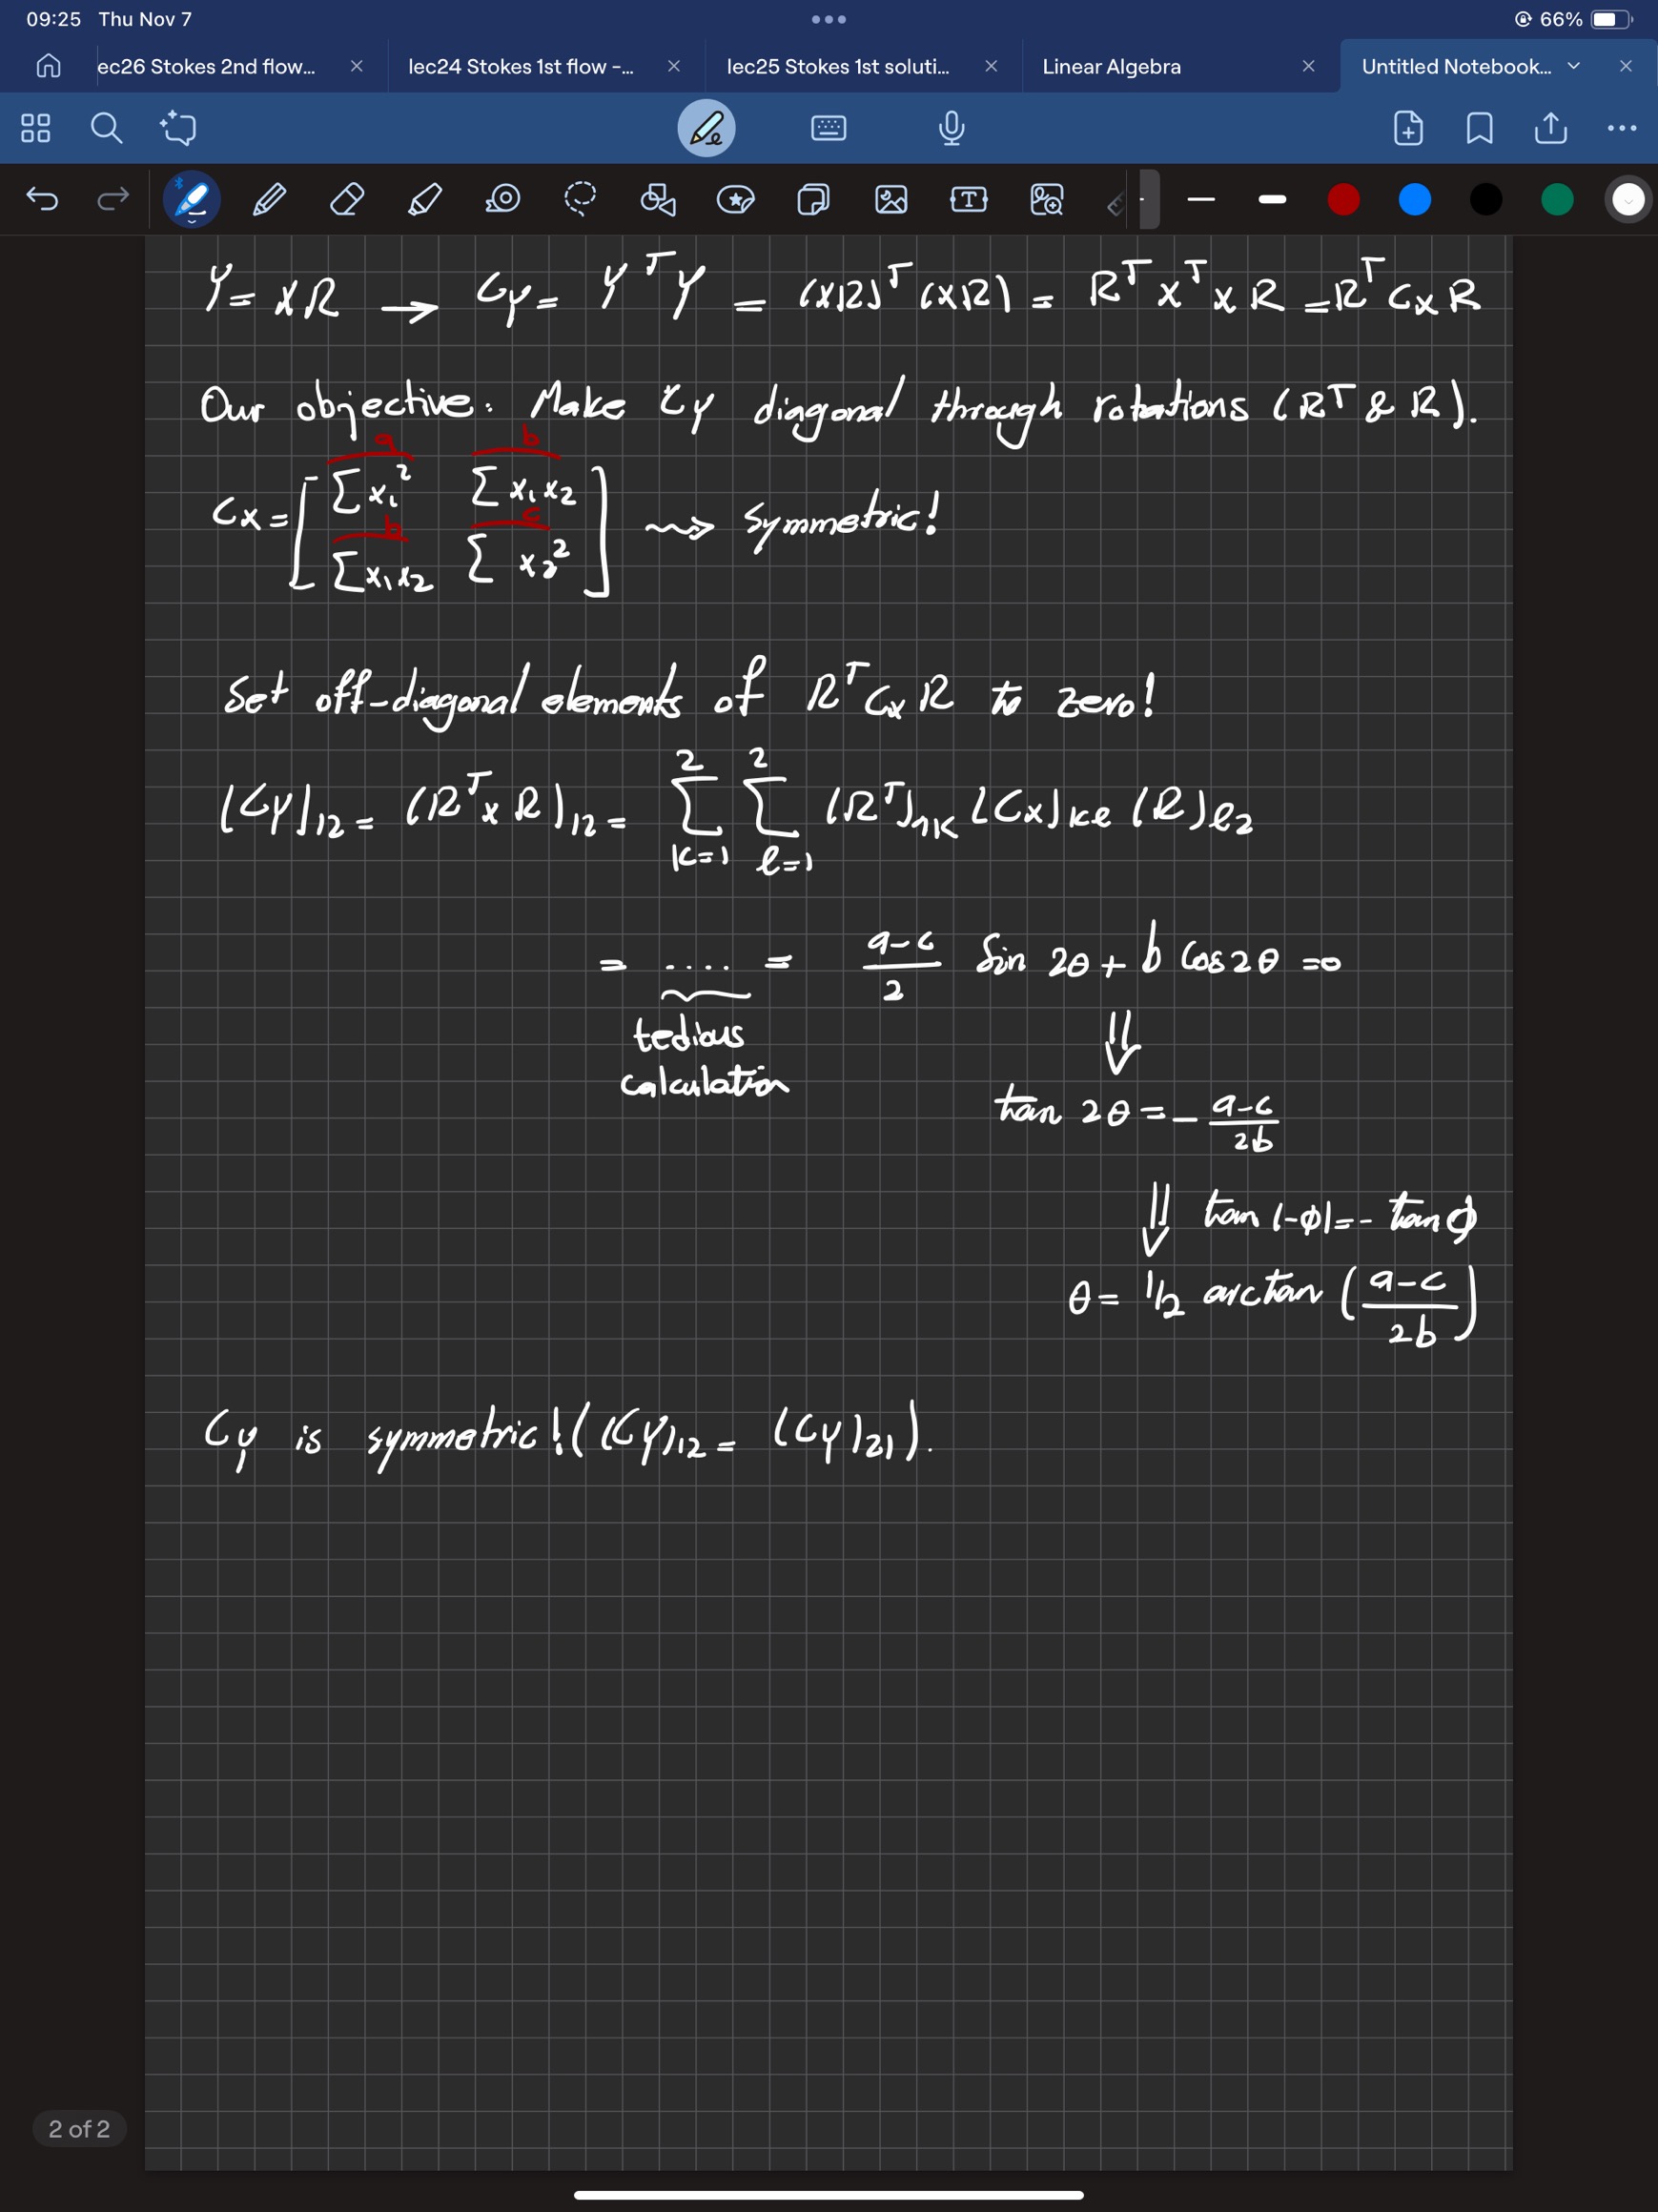 09:25 Thu Nov 7
66%
ec26 Stokes 2nd flow... lec24 Stokes 1st flow -... lec25 Stokes 1st soluti... Linear Algebra Untitled Notebook...
Y = XR → Cy = YᵀY = (XR)ᵀ(XR) = RᵀXᵀXR = RᵀCxR
Our objective: Make Cy diagonal through rotations (Rᵀ & R).
a b
Cx = [ Σx₁² Σx₁x₂
b c
Σx₁x₂ Σx₂² ] ⇝ Symmetric!
Set off-diagonal elements of RᵀCxR to zero!
(Cy)₁₂ = (RᵀxR)₁₂ = Σ_{k=1}^{2} Σ_{ℓ=1}^{2} (Rᵀ)₁ₖ (Cx)ₖₗ (R)ₗ₂
= .... = (a-c)/2 Sin 2θ + b Cos 2θ = 0
tedious
calculation
⇓
tan 2θ = - (a-c)/2b
⇓ tan(-ϕ) = - tan ϕ
θ = 1/2 arctan ((a-c)/2b)
Cy is symmetric! ((Cy)₁₂ = (Cy)₂₁).
2 of 2